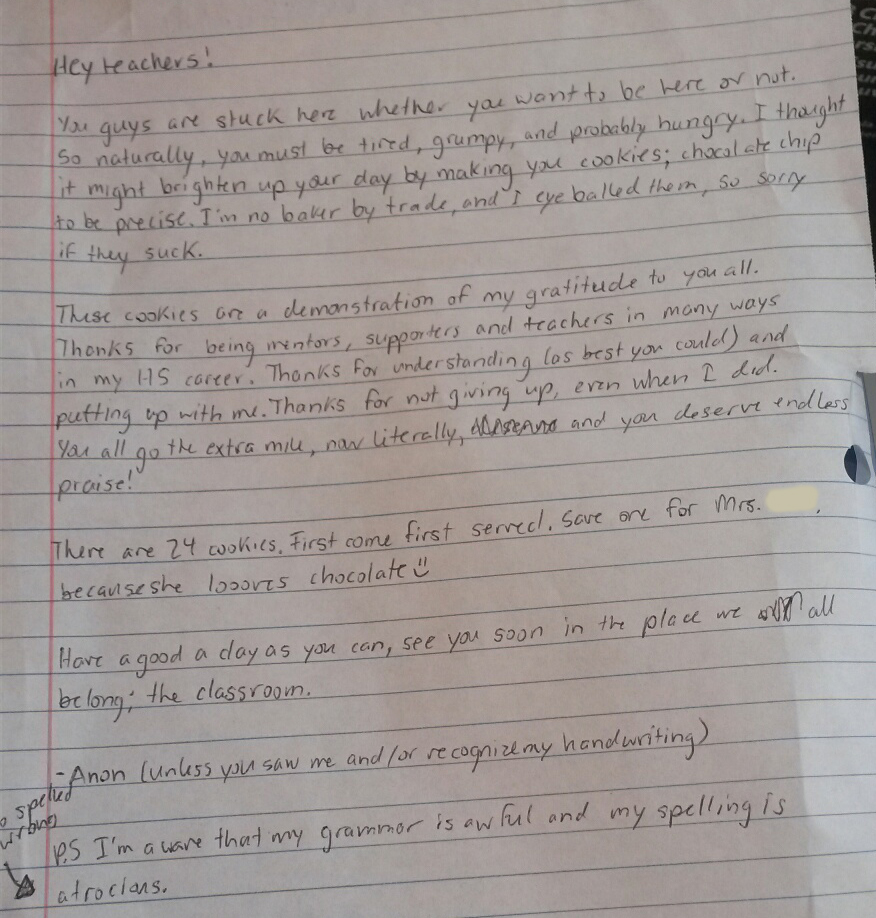 Hey teachers!
You guys are stuck here whether you want to be here or not.
So naturally, you must be tired, grumpy, and probably hungry. I thought
it might brighten up your day by making you cookies; chocolate chip
to be precise. I'm no baker by trade, and I eyeballed them, so sorry
if they suck.
These cookies are a demonstration of my gratitude to you all.
Thanks for being mentors, supporters and teachers in many ways
in my HS career. Thanks for understanding (as best you could) and
putting up with me. Thanks for not giving up, even when I did.
You all go the extra mile, now literally, and you deserve endless
praise!
There are 24 cookies. First come first served. Save one for Mrs. .
because she loooves chocolate
Have a good a day as you can, see you soon in the place we all
belong; the classroom.
-Anon (unless you saw me and/or recognize my handwriting)
spelled
wrong
P.S I'm aware that my grammar is awful and my spelling is
atrocians.